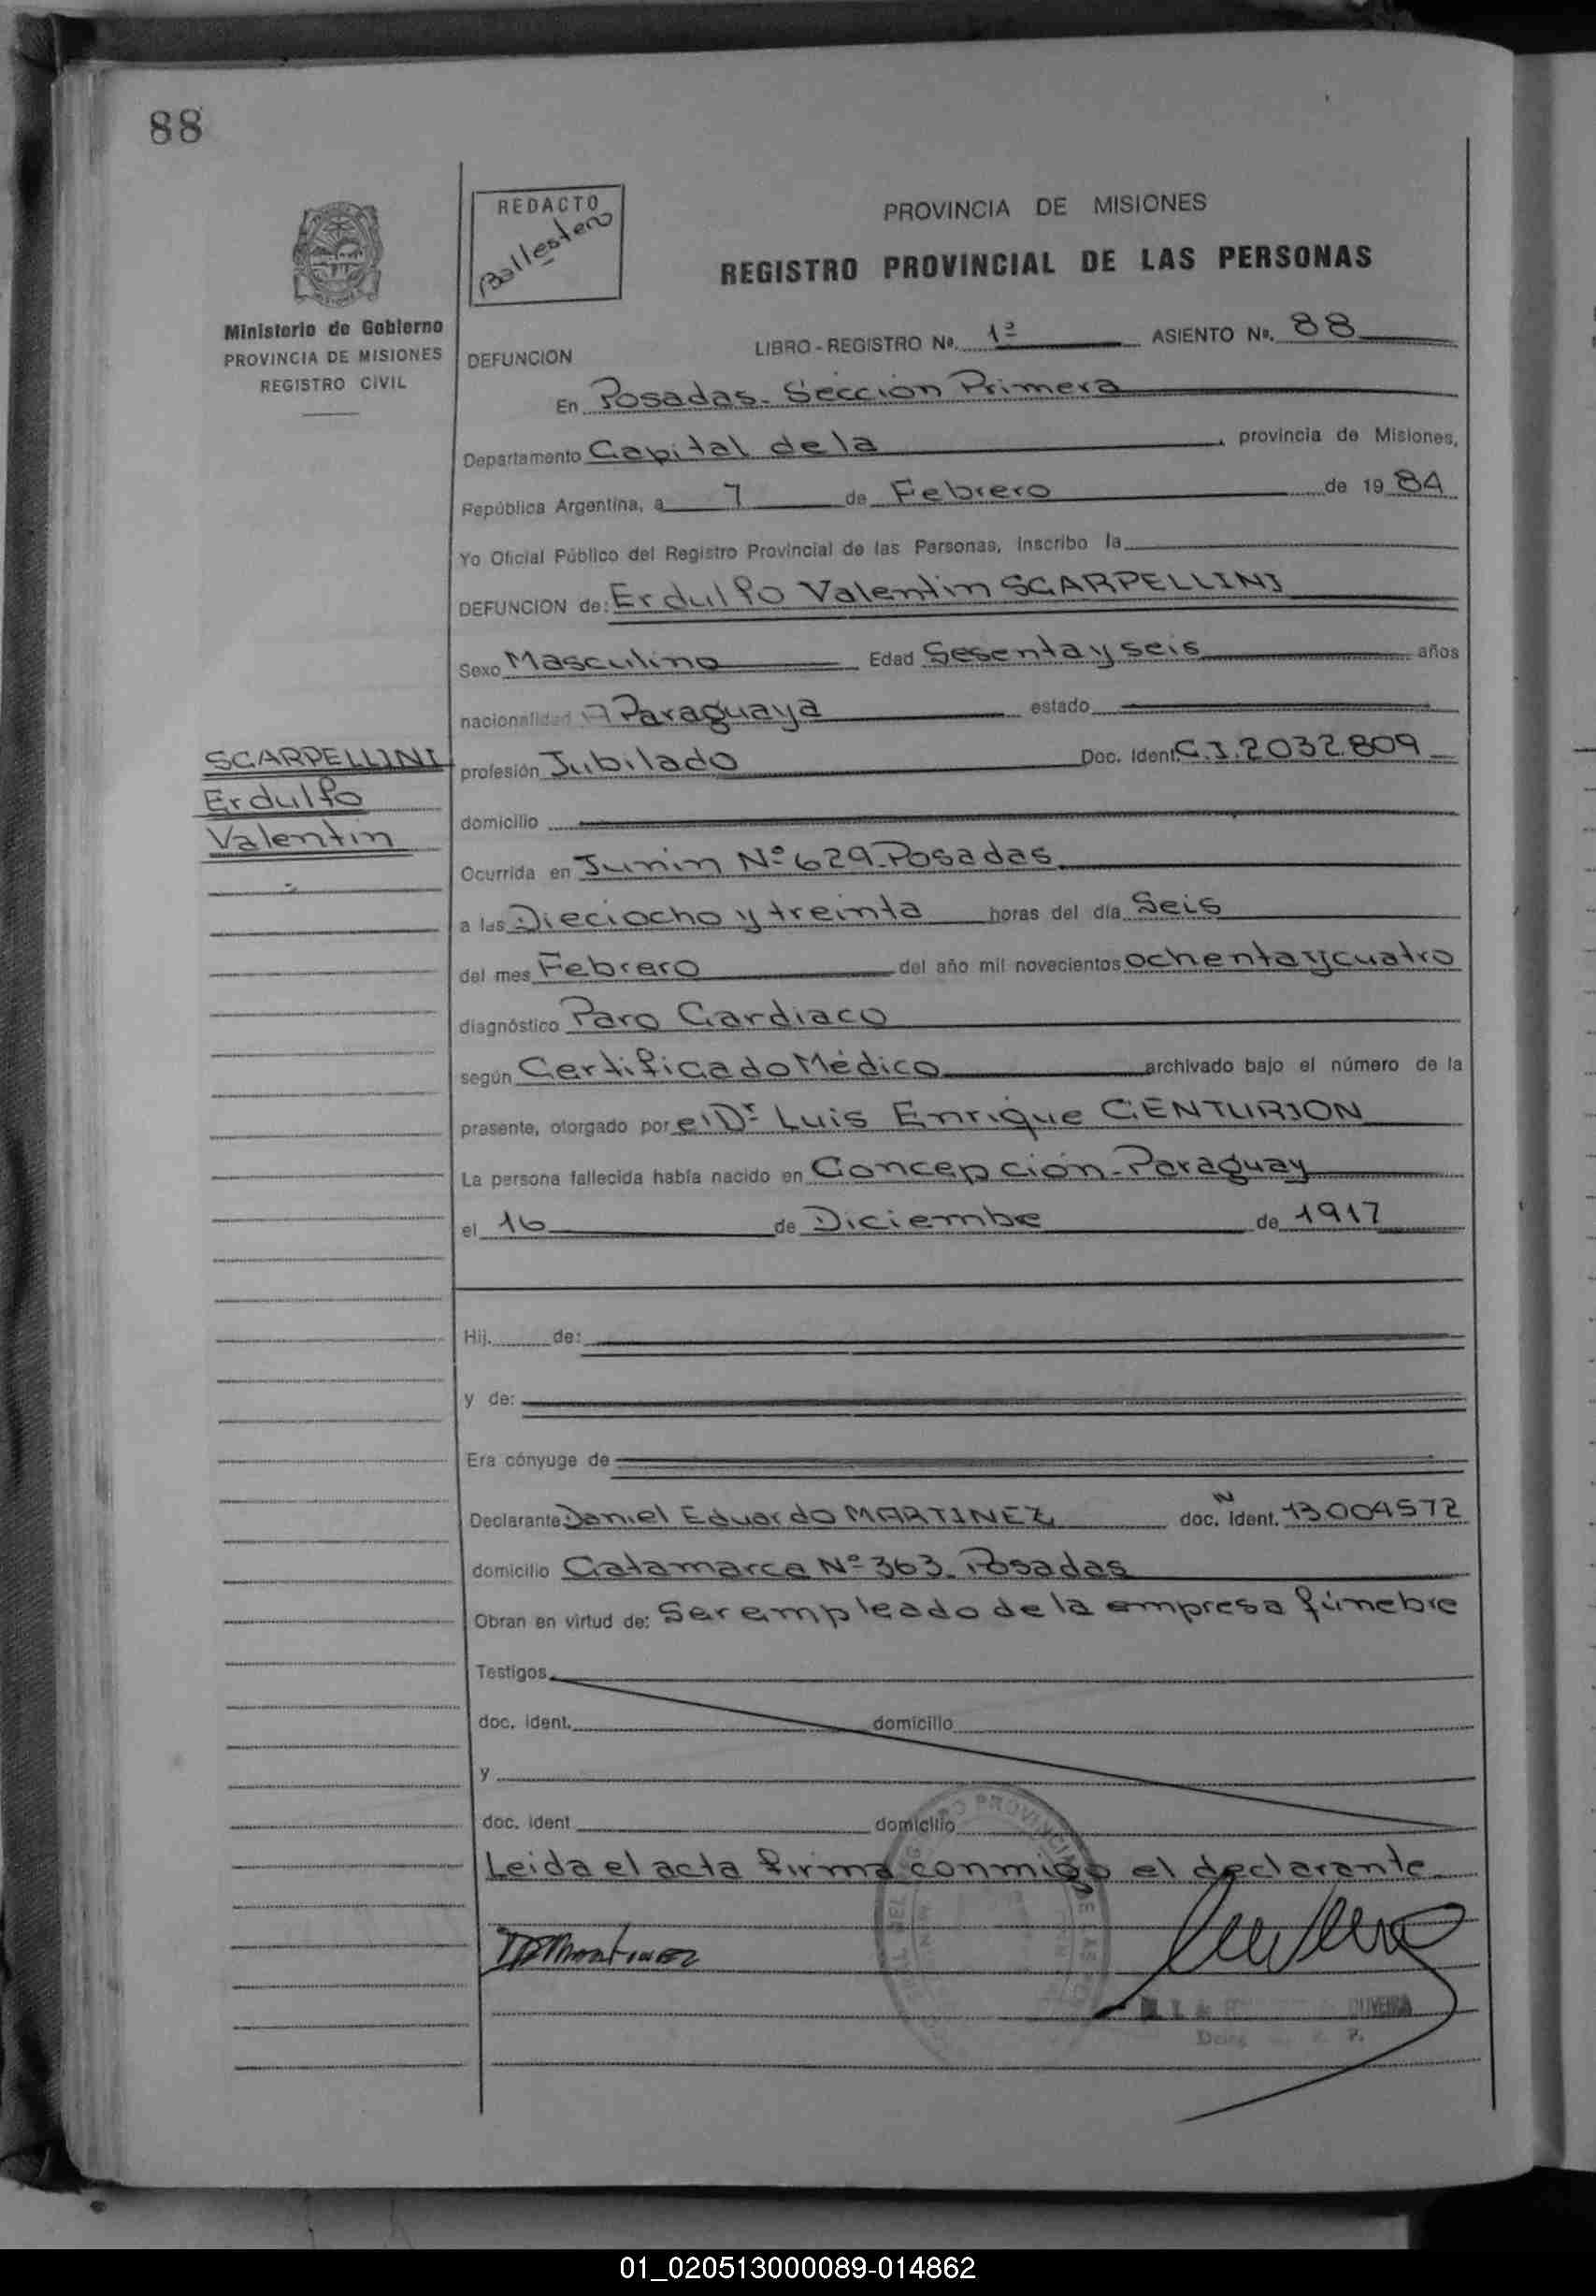 88
REDACTO
Ballestero
PROVINCIA DE MISIONES
REGISTRO PROVINCIAL DE LAS PERSONAS
Ministerio de Gobierno
PROVINCIA DE MISIONES
REGISTRO CIVIL
DEFUNCION LIBRO-REGISTRO Nº. 1º ASIENTO Nº. 88
En Posadas. Sección Primera
Departamento Capital de la, provincia de Misiones,
República Argentina, a 7 de Febrero de 1984
Yo Oficial Público del Registro Provincial de las Personas, inscribo la
DEFUNCION de: Erdulfo Valentin SCARPELLINI
Sexo Masculino Edad Sesenta y seis años
nacionalidad Paraguaya estado
SCARPELLINI
Erdulfo
Valentin
profesión Jubilado Doc. Ident. C.I. 2032.809
domicilio
Ocurrida en Junin Nº 629 Posadas
a las Dieciocho y treinta horas del día Seis
del mes Febrero del año mil novecientos ochenta y cuatro
diagnóstico Paro Cardiaco
según Certificado Médico archivado bajo el número de la
presente, otorgado por el Dr Luis Enrique CENTURION
La persona fallecida había nacido en Concepción-Paraguay
el 16 de Diciembre de 1917
Hij. de:
y de:
Era cónyuge de
Declarante Daniel Eduardo MARTINEZ doc. N ident. 13004572
domicilio Catamarca Nº 363. Posadas
Obran en virtud de: Ser empleado de la empresa fúnebre
Testigos
doc. ident. domicilio
y
doc. ident domicilio
Leida el acta firma conmigo el declarante.
Martinez
OLIVEIRA
01_020513000089-014862